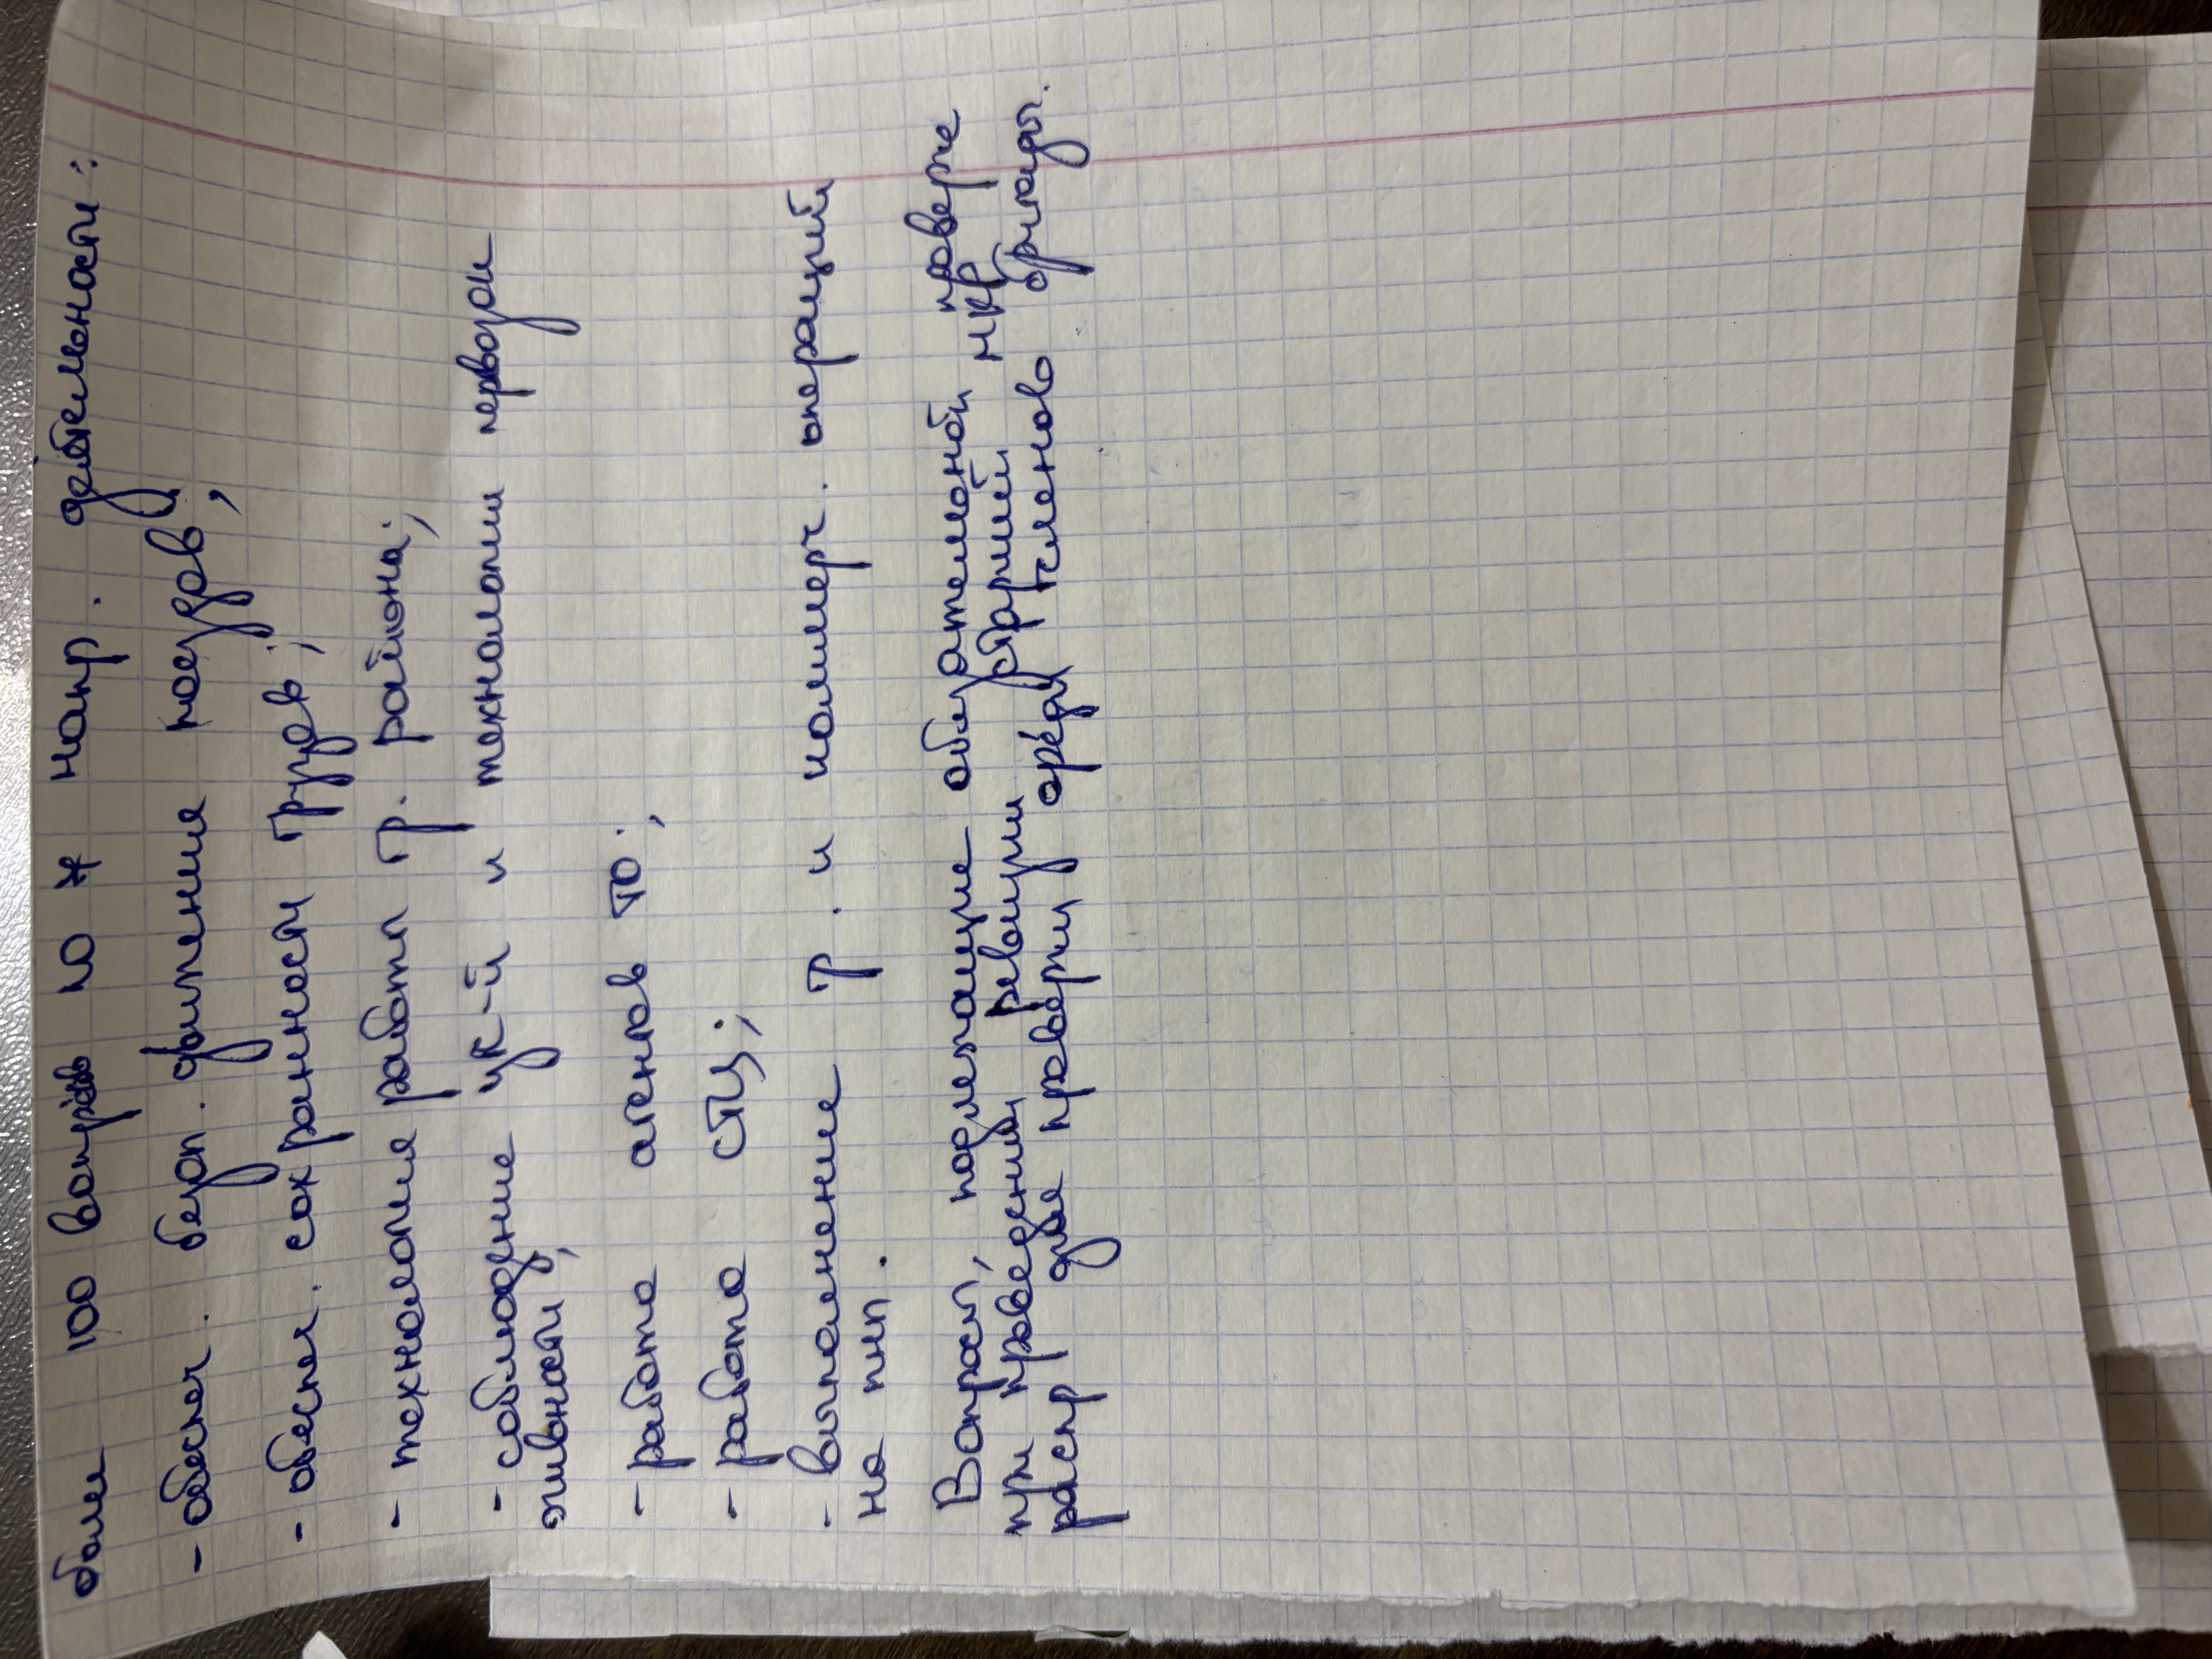 более 100 вопросов по ж напр. деятельности:
- обеспеч. безоп. движения поездов;
- обеспеч. сохранности грузов;
- технология работы г. района;
- соблюдение ус-й и технологии перевозки
живности;
- работа агентов ТО;
- работа СТЦ;
- выполнение г. и коммерч. операций
на пнп.
Вопросы, подлежащие обязательной проверке
при проведении ревизии старший НКР
распр для проверки среди членов бригады.